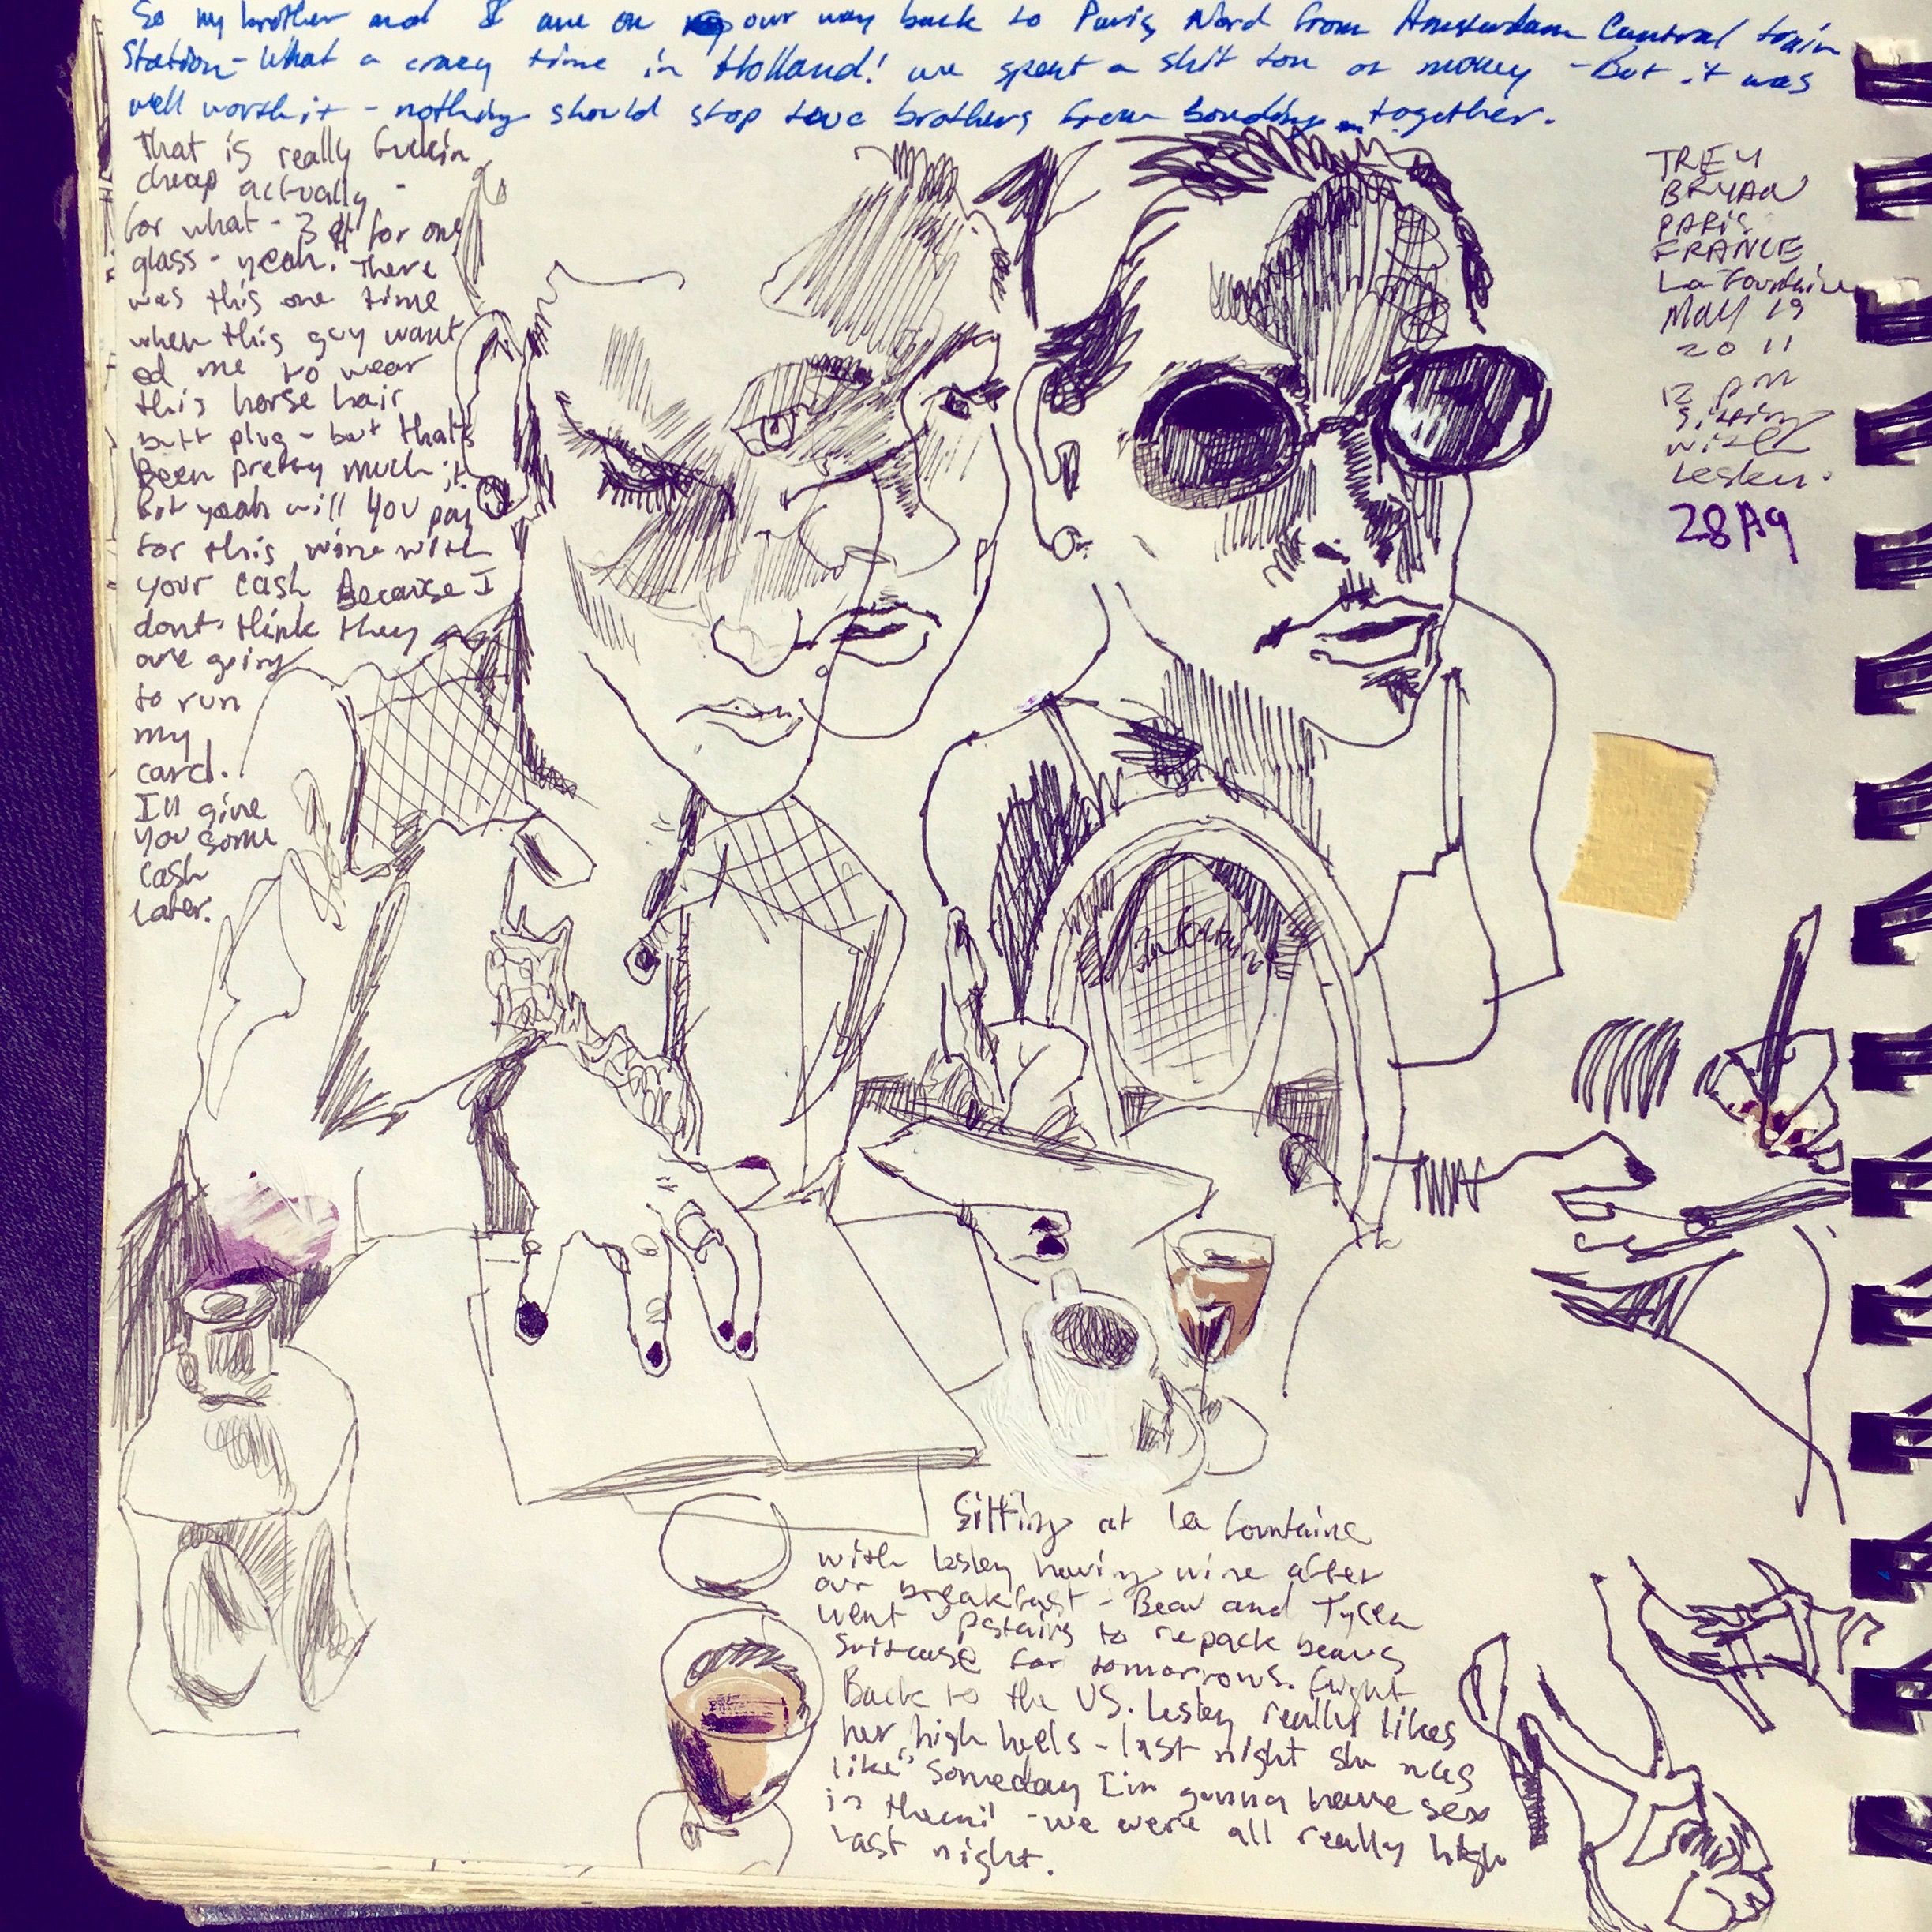 So my brother and I are on our way back to Paris Nord from Amsterdam Central train
Station - What a crazy time in Holland! we spent a shit ton of money - But it was
well worth it - nothing should stop two brothers from bonding together.
That is really fuckin
cheap actually -
for what - 3 for one
glass - yeah. There
was this one time
when this guy want
ed me to wear
this horse hair
butt plug - but that's
Been pretty much it.
But yeah will you pay
for this wine with
your cash Because I
dont think they
are going
to run
my
card.
I'll give
you some
cash
later.
TREY
BRYAN
PARIS
FRANCE
La Fountaine
MAY 19
2011
12 pm
Sitting
with
Lesley.
28 Ag
Sitting at La Fountaine
with Lesley having wine after
our breakfast - Beau and Tycen
went upstairs to repack beaus
Suitcase for tomorrows flight
Back to the US. Lesley really likes
her high heels - last night she was
like "Someday I'm gunna have sex
in them! - we were all really high
Last night.